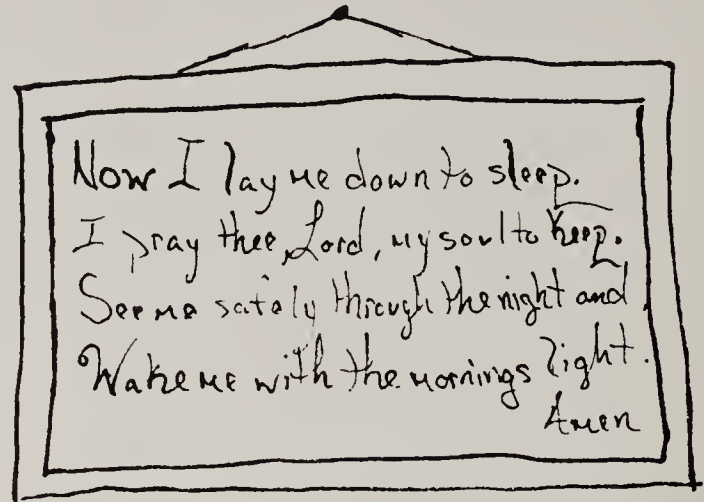 Now I lay me down to sleep.
I pray thee, Lord, my soul to keep.
See me safely through the night and
Wake me with the mornings light.
Amen